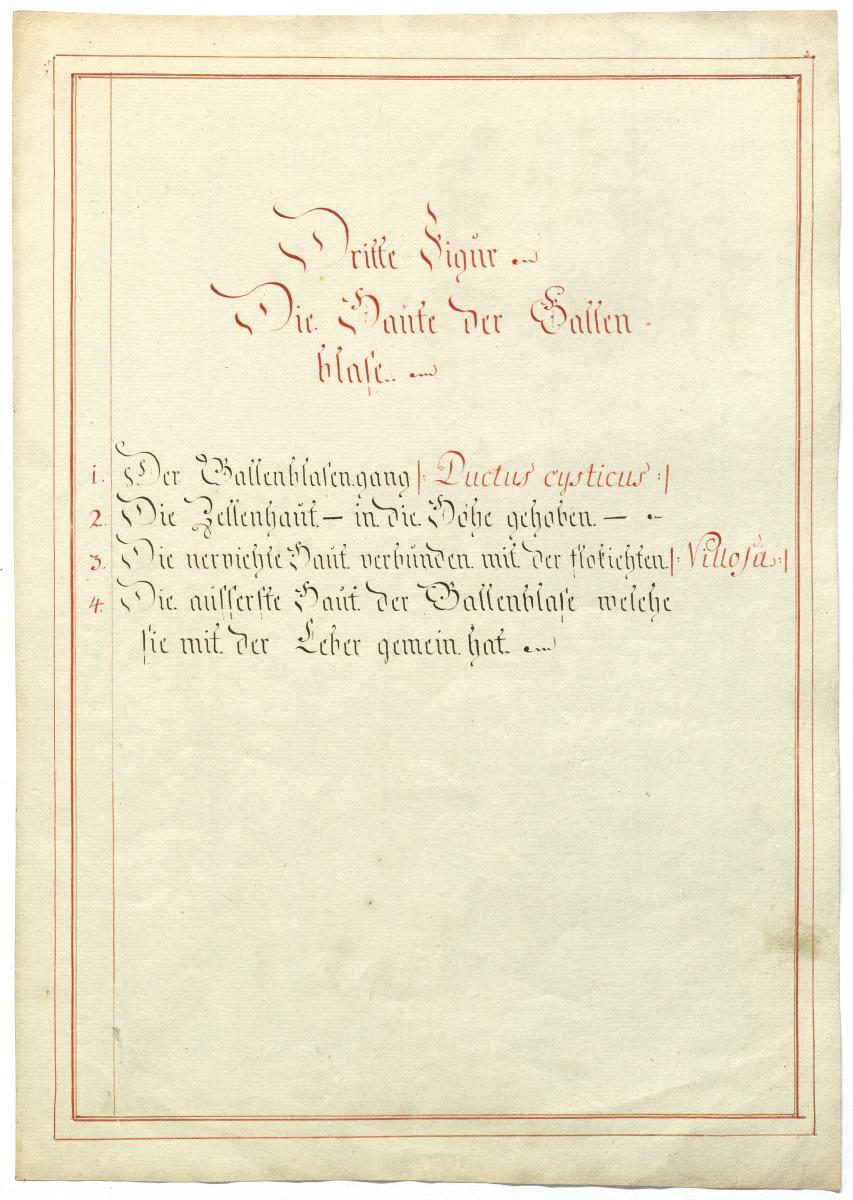 Dritte Figur
Die Haute der Gallen
blase..
1. Der Gallenblasen.gang |: Ductus cysticus :|
2. Die Zellenhaut. — in die Höhe gehoben. —
3. Die nervichte Haut. verbunden mit der flokichten |: Villosa :|
4. Die äusserste Haut. der Gallenblase welche
sie mit der Leber gemein. hat.